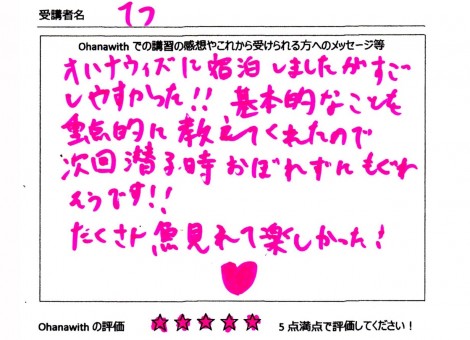 受講者名 てつ
Ohanawith での講習の感想やこれから受けられる方へのメッセージ等
オハナウィズに宿泊しましたがすごし
しやすかった!! 基本的なことを
重点的に教えてくれたので
次回潜る時おぼれずにもぐれ
そうです!!
たくさん魚見れて楽しかった!
Ohanawith の評価 ☆☆☆☆☆ 5 点満点で評価してください！